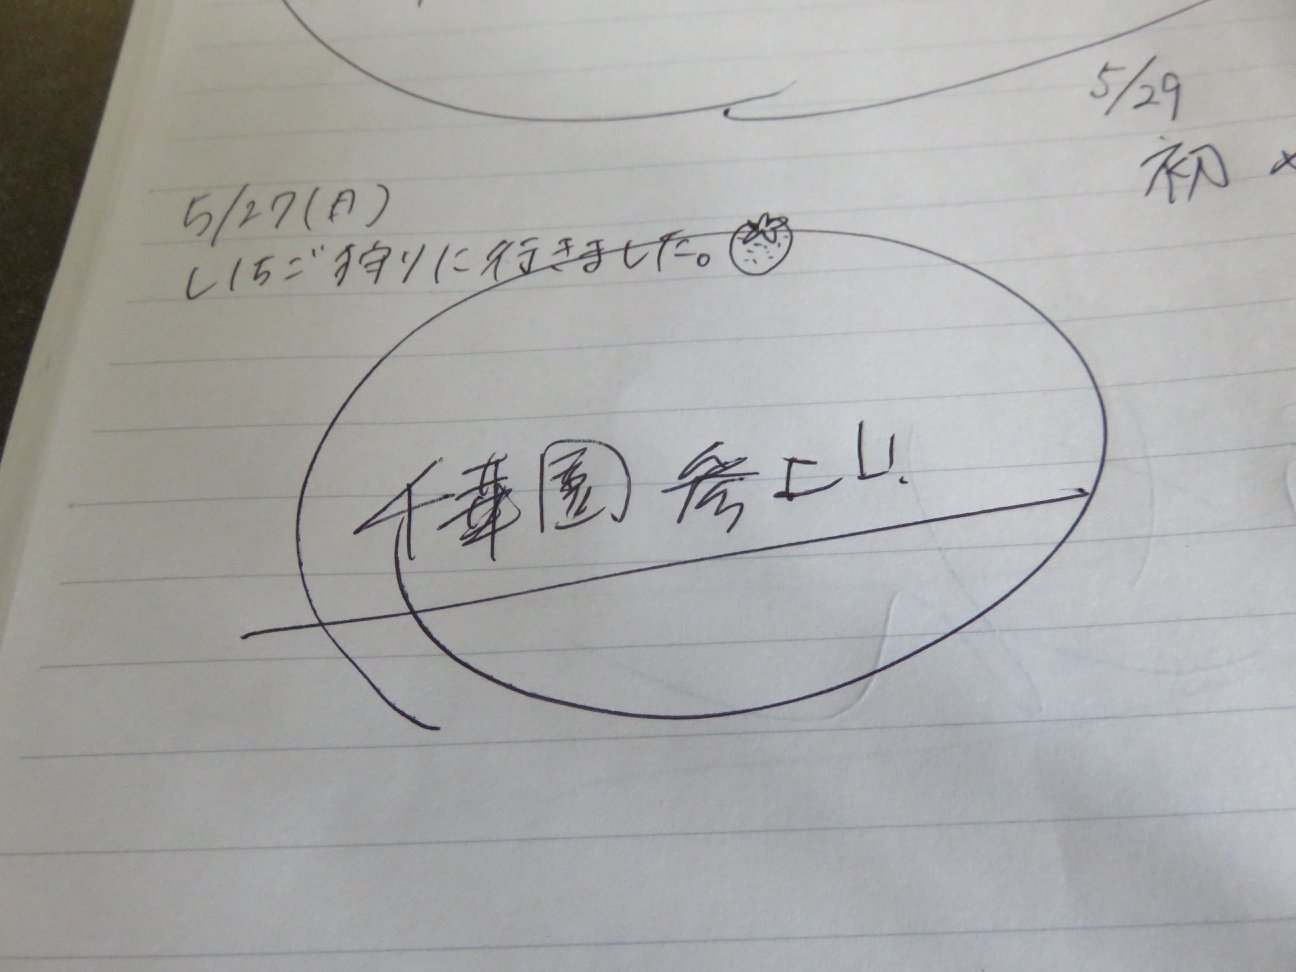 5/27(月)
いちご狩りに行きました。
千華園 参上!!
5/29
初